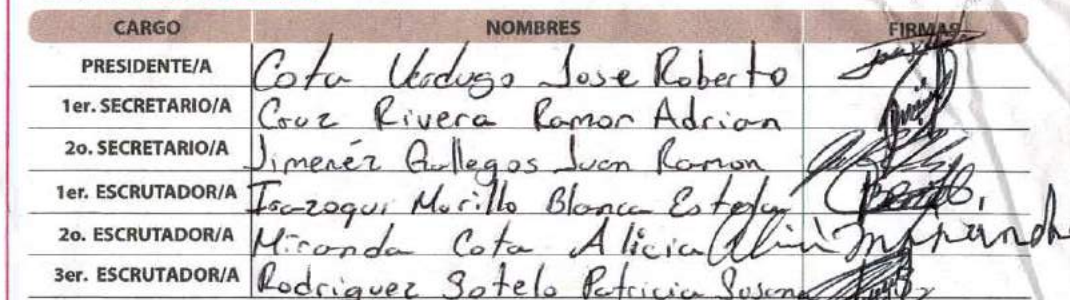 CARGO NOMBRES FIRMAS
PRESIDENTE/A Cota Verdugo Jose Roberto
1er. SECRETARIO/A Cruz Rivera Ramon Adrian
2o. SECRETARIO/A Jimenéz Gallegos Juan Ramon
1er. ESCRUTADOR/A Irazoqui Murillo Blanca Estela
2o. ESCRUTADOR/A Miranda Cota Alicia
3er. ESCRUTADOR/A Rodriguez Sotelo Patricia Susana